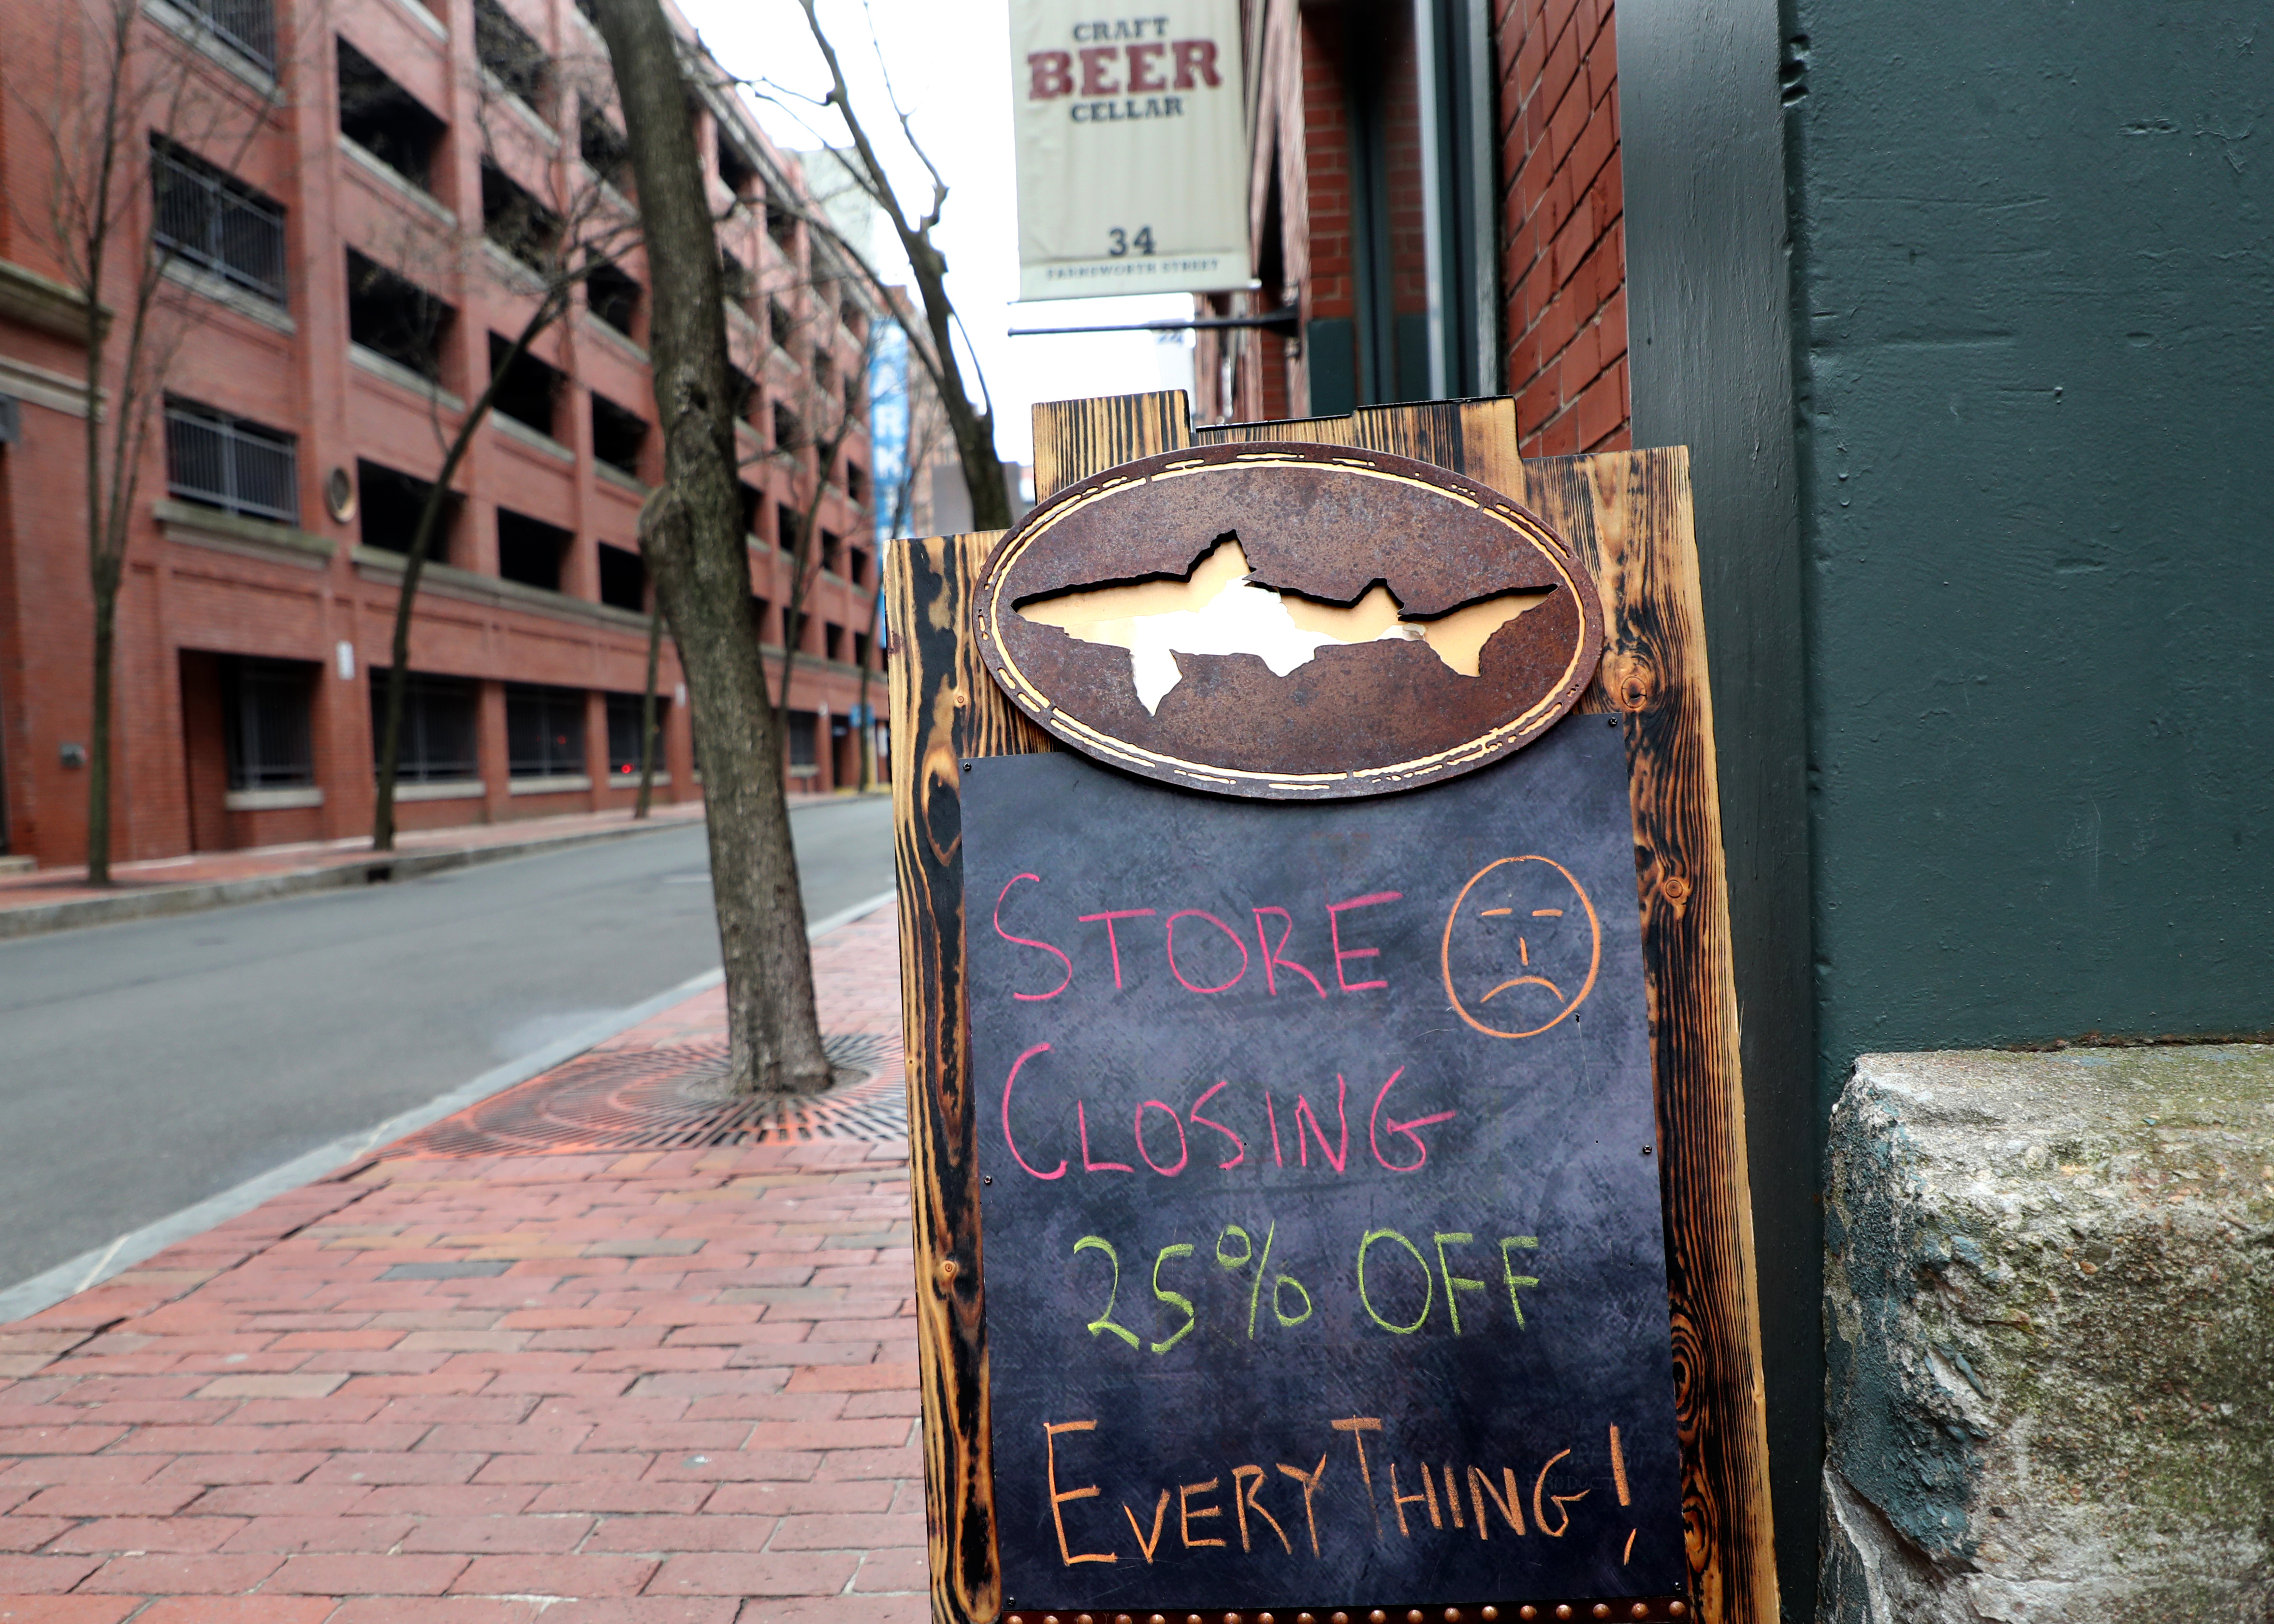 CRAFT
BEER
CELLAR
34
FARNSWORTH STREET
STORE
CLOSING
25% OFF
EVERYTHING!